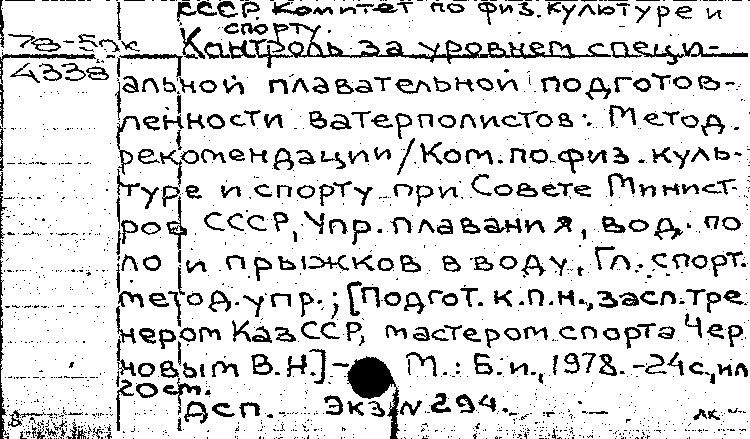 СССР. Комитет по физ. культуре и
спорту.
78-50к Контроль за уровнем специ-
4338 альной плавательной подготов-
ленности ватерполистов: Метод.
рекомендации/Ком. по физ. куль-
туре и спорту при Совете Минист-
ров СССР, Упр. плавания, вод. по
ло и прыжков в воду, Гл. спорт.
метод. упр.; [Подгот. к.п.н., засл. тре
нером КазССР, мастером спорта Чер
новым В. Н.] - М.: Б. и., 1978. - 24с., ил
20 см.
ДСП. Экз N 294.
лк